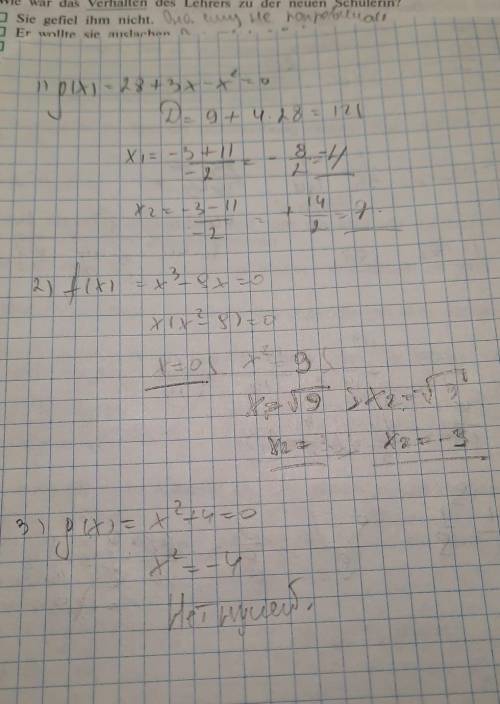 Wie war das Verhalten des Lehrers zu der neuen Schülerin?
Sie gefiel ihm nicht. Она ему не
Er wollte sie auslachen
1) g(x) = 28 + 3x - x² = 0
D = 9 + 4 · 28 = 121
x1 = (-3 + 11)/(-2) = - 8/2 = -4
x2 = (-3 - 11)/(-2) = + 14/2 = 7.
2) f(x) = x³ - 9x = 0
x(x² - 9) = 0
x = 0; x² = 9;
x = √9; x2 = -√9
x2 = x2 = -3
3) g(x) = x² + 4 = 0
x² = -4
Нет нулей.